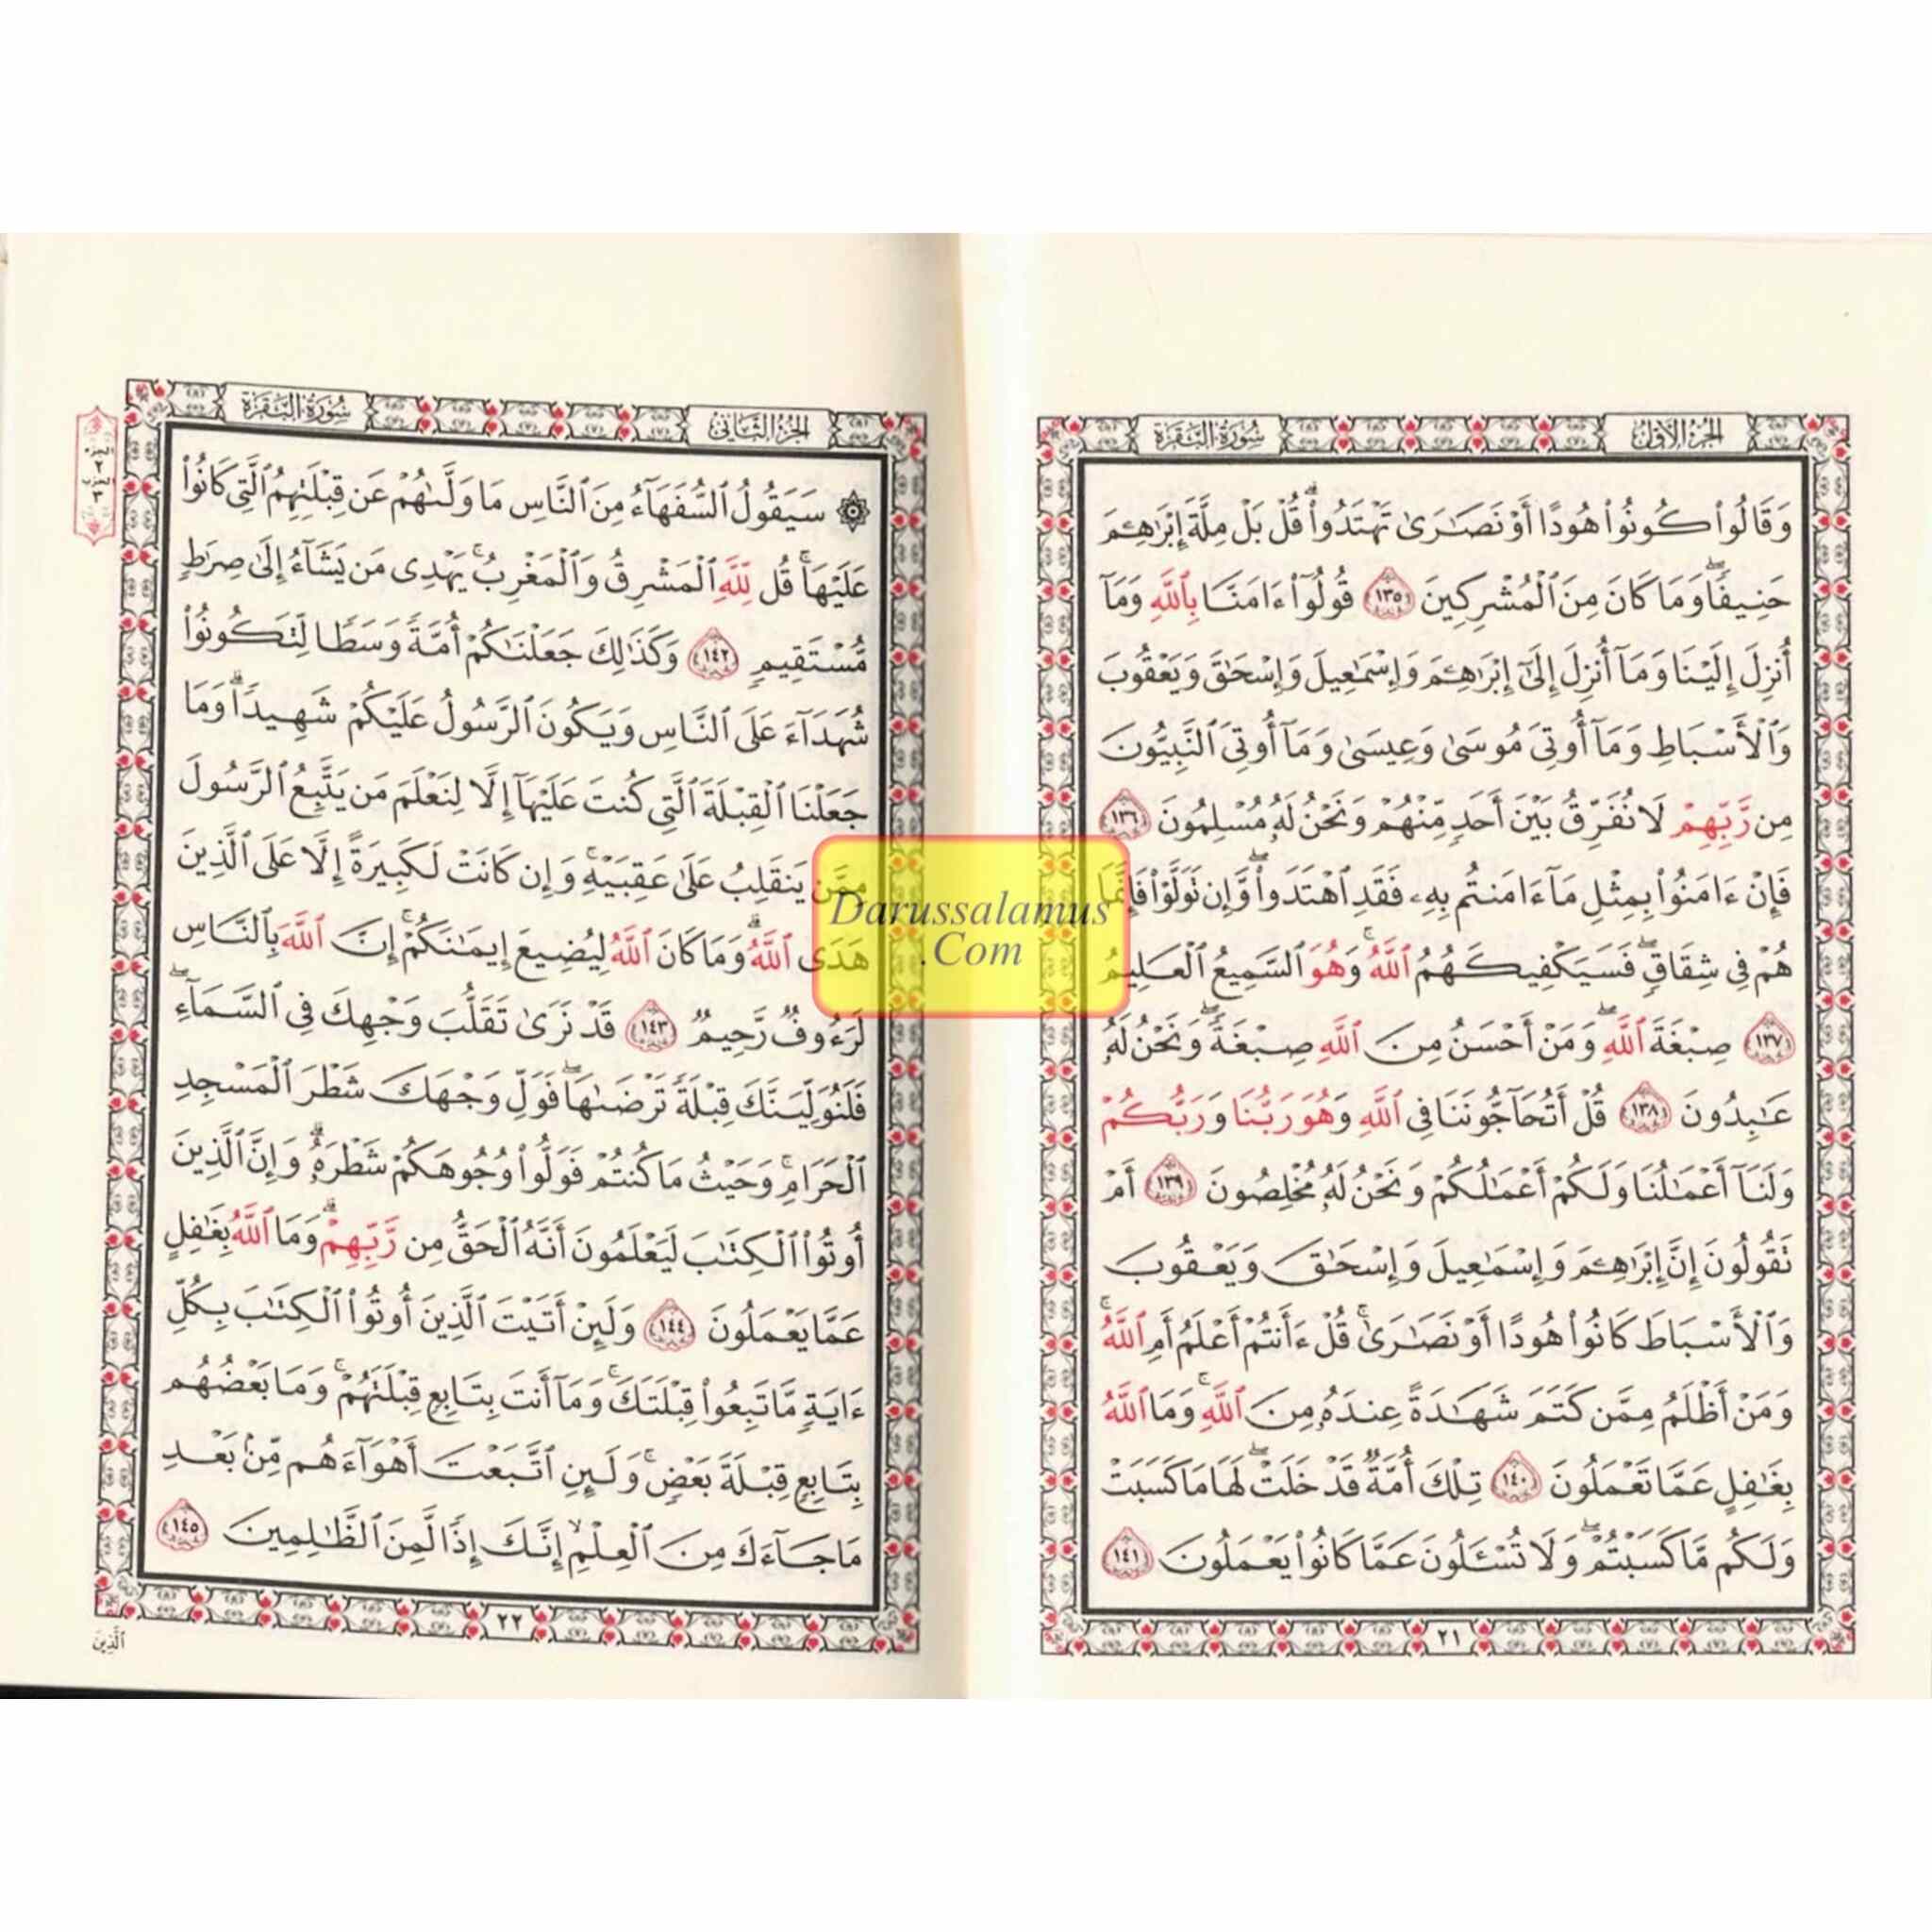 الجزء الأول
سورة البقرة
وَقَالُوا۟ كُونُوا۟ هُودًا أَوْ نَصَـٰرَىٰ تَهْتَدُوا۟ ۗ قُلْ بَلْ مِلَّةَ إِبْرَٰهِـۧمَ
حَنِيفًا ۖ وَمَا كَانَ مِنَ ٱلْمُشْرِكِينَ ١٣٥ قُولُوٓا۟ ءَامَنَّا بِٱللَّهِ وَمَآ
أُنزِلَ إِلَيْنَا وَمَآ أُنزِلَ إِلَىٰٓ إِبْرَٰهِـۧمَ وَإِسْمَـٰعِيلَ وَإِسْحَـٰقَ وَيَعْقُوبَ
وَٱلْأَسْبَاطِ وَمَآ أُوتِىَ مُوسَىٰ وَعِيسَىٰ وَمَآ أُوتِىَ ٱلنَّبِيُّونَ
مِن رَّبِّهِمْ لَا نُفَرِّقُ بَيْنَ أَحَدٍ مِّنْهُمْ وَنَحْنُ لَهُۥ مُسْلِمُونَ ١٣٦
فَإِنْ ءَامَنُوا۟ بِمِثْلِ مَآ ءَامَنتُم بِهِۦ فَقَدِ ٱهْتَدَوا۟ ۖ وَّإِن تَوَلَّوْا۟ فَإِنَّمَا
هُمْ فِى شِقَاقٍ ۖ فَسَيَكْفِيكَهُمُ ٱللَّهُ ۚ وَهُوَ ٱلسَّمِيعُ ٱلْعَلِيمُ
١٣٧ صِبْغَةَ ٱللَّهِ ۖ وَمَنْ أَحْسَنُ مِنَ ٱللَّهِ صِبْغَةً ۖ وَنَحْنُ لَهُۥ
عَـٰبِدُونَ ١٣٨ قُلْ أَتُحَآجُّونَنَا فِى ٱللَّهِ وَهُوَ رَبُّنَا وَرَبُّكُمْ
وَلَنَآ أَعْمَـٰلُنَا وَلَكُمْ أَعْمَـٰلُكُمْ وَنَحْنُ لَهُۥ مُخْلِصُونَ ١٣٩ أَمْ
تَقُولُونَ إِنَّ إِبْرَٰهِـۧمَ وَإِسْمَـٰعِيلَ وَإِسْحَـٰقَ وَيَعْقُوبَ
وَٱلْأَسْبَاطَ كَانُوا۟ هُودًا أَوْ نَصَـٰرَىٰ ۗ قُلْ ءَأَنتُمْ أَعْلَمُ أَمِ ٱللَّهُ ۗ
وَمَنْ أَظْلَمُ مِمَّن كَتَمَ شَهَـٰدَةً عِندَهُۥ مِنَ ٱللَّهِ ۗ وَمَا ٱللَّهُ
بِغَـٰفِلٍ عَمَّا تَعْمَلُونَ ١٤٠ تِلْكَ أُمَّةٌ قَدْ خَلَتْ ۖ لَهَا مَا كَسَبَتْ
وَلَكُم مَّا كَسَبْتُمْ ۖ وَلَا تُسْـَٔلُونَ عَمَّا كَانُوا۟ يَعْمَلُونَ ١٤١
٢١
الجزء الثاني
سورة البقرة
الجزء
٢
الحزب
٣
۞ سَيَقُولُ ٱلسُّفَهَآءُ مِنَ ٱلنَّاسِ مَا وَلَّىٰهُمْ عَن قِبْلَتِهِمُ ٱلَّتِى كَانُوا۟
عَلَيْهَا ۚ قُل لِّلَّهِ ٱلْمَشْرِقُ وَٱلْمَغْرِبُ ۚ يَهْدِى مَن يَشَآءُ إِلَىٰ صِرَٰطٍ
مُّسْتَقِيمٍ ١٤٢ وَكَذَٰلِكَ جَعَلْنَـٰكُمْ أُمَّةً وَسَطًا لِّتَكُونُوا۟
شُهَدَآءَ عَلَى ٱلنَّاسِ وَيَكُونَ ٱلرَّسُولُ عَلَيْكُمْ شَهِيدًا ۗ وَمَا
جَعَلْنَا ٱلْقِبْلَةَ ٱلَّتِى كُنتَ عَلَيْهَآ إِلَّا لِنَعْلَمَ مَن يَتَّبِعُ ٱلرَّسُولَ
مِمَّن يَنقَلِبُ عَلَىٰ عَقِبَيْهِ ۚ وَإِن كَانَتْ لَكَبِيرَةً إِلَّا عَلَى ٱلَّذِينَ
هَدَى ٱللَّهُ ۗ وَمَا كَانَ ٱللَّهُ لِيُضِيعَ إِيمَـٰنَكُمْ ۚ إِنَّ ٱللَّهَ بِٱلنَّاسِ
لَرَءُوفٌ رَّحِيمٌ ١٤٣ قَدْ نَرَىٰ تَقَلُّبَ وَجْهِكَ فِى ٱلسَّمَآءِ ۖ
فَلَنُوَلِّيَنَّكَ قِبْلَةً تَرْضَىٰهَا ۚ فَوَلِّ وَجْهَكَ شَطْرَ ٱلْمَسْجِدِ
ٱلْحَرَامِ ۚ وَحَيْثُ مَا كُنتُمْ فَوَلُّوا۟ وُجُوهَكُمْ شَطْرَهُۥ ۗ وَإِنَّ ٱلَّذِينَ
أُوتُوا۟ ٱلْكِتَـٰبَ لَيَعْلَمُونَ أَنَّهُ ٱلْحَقُّ مِن رَّبِّهِمْ ۗ وَمَا ٱللَّهُ بِغَـٰفِلٍ
عَمَّا يَعْمَلُونَ ١٤٤ وَلَئِنْ أَتَيْتَ ٱلَّذِينَ أُوتُوا۟ ٱلْكِتَـٰبَ بِكُلِّ
ءَايَةٍ مَّا تَبِعُوا۟ قِبْلَتَكَ ۚ وَمَآ أَنتَ بِتَابِعٍ قِبْلَتَهُمْ ۚ وَمَا بَعْضُهُم
بِتَابِعٍ قِبْلَةَ بَعْضٍ ۚ وَلَئِنِ ٱتَّبَعْتَ أَهْوَآءَهُم مِّنۢ بَعْدِ
مَا جَآءَكَ مِنَ ٱلْعِلْمِ ۙ إِنَّكَ إِذًا لَّمِنَ ٱلظَّـٰلِمِينَ ١٤٥
٢٢
ٱلَّذِينَ
Darussalamus
.Com